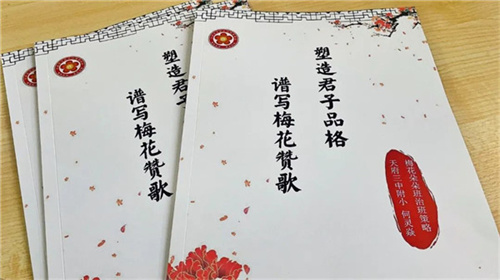 塑造君子品格
谱写梅花赞歌
塑造君子品格
谱写梅花赞歌
梅花朵朵班治班策略
天府三中附小 何灵焱